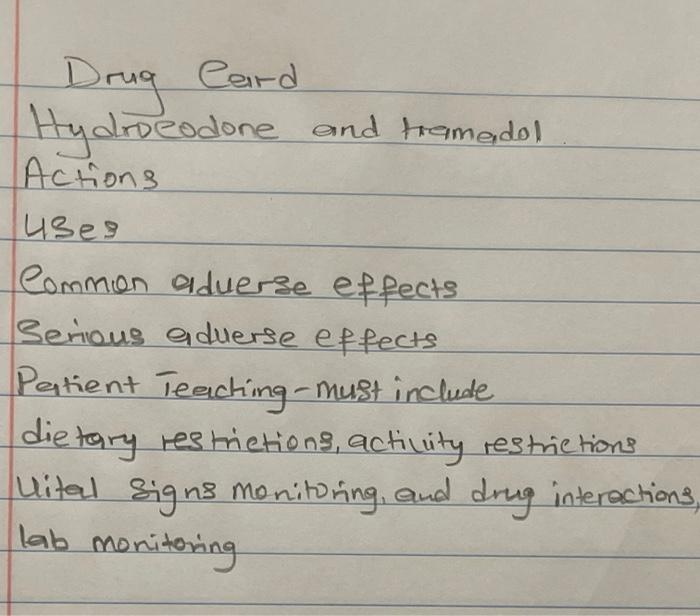 Drug Card
Hydrocodone and tramadol
Actions
Uses
Common adverse effects
Serious adverse effects
Patient Teaching - must include
dietary restrictions, activity restrictions
Vital signs monitoring, and drug interactions,
lab monitoring